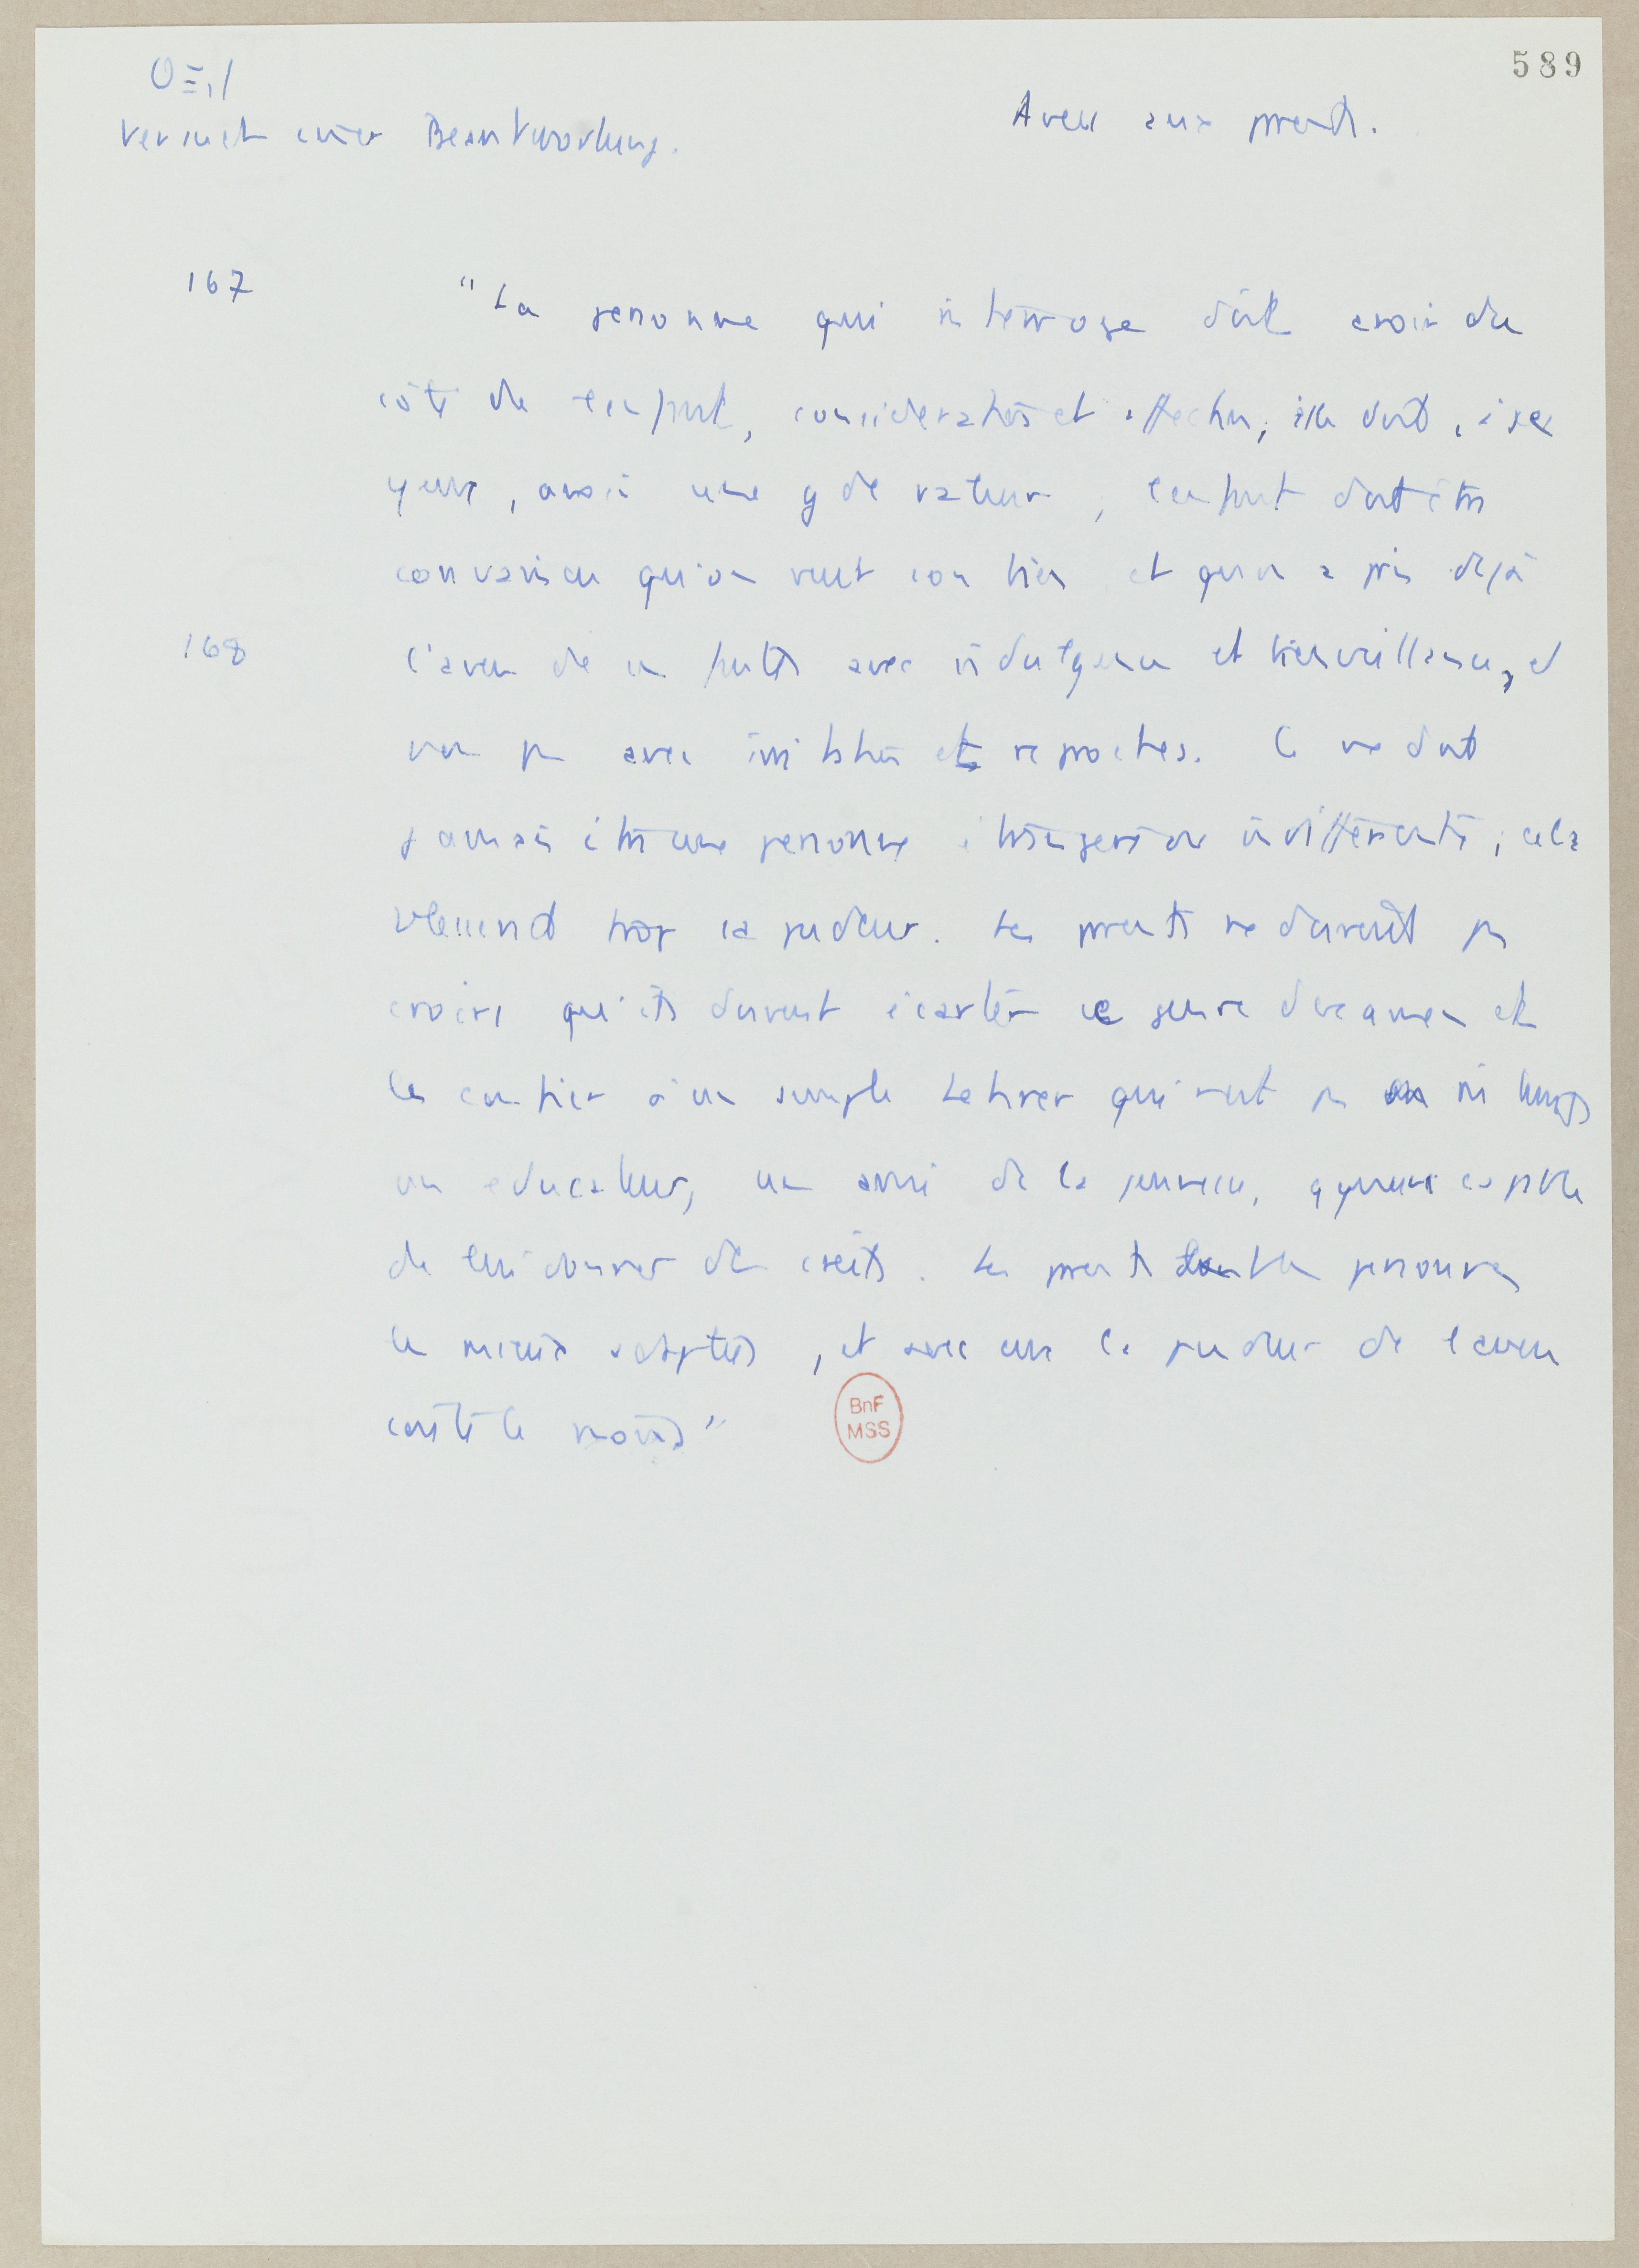 589
Versuch einer Beantwortung.
Aveu aux parents.
167 "La personne qui interroge doit avoir du
côté de l'enfant, considération et affection; elle doit, à ses
yeux, avoir une gde valeur; l'enfant doit être
convaincu qu'on veut son bien et qu'on a pris déjà
168 l'aveu de sa faute avec indulgence et bienveillance, et
non pas avec irritation et reproches. Ce ne doit
jamais être une personne étrangère ou indifférente; cela
blesserait trop la pudeur. Les parents ne devraient pas
croire qu'ils doivent écarter ce genre d'examen et
les confier à un simple Lehrer qui n'est pas en mi temps
un éducateur, un ami de la jeunesse, qqun capable
de lui donner des conseils. Les parents sont les personnes
les mieux adaptées, et avec eux la pudeur de l'aveu
coûte le moins"
BnF
MSS